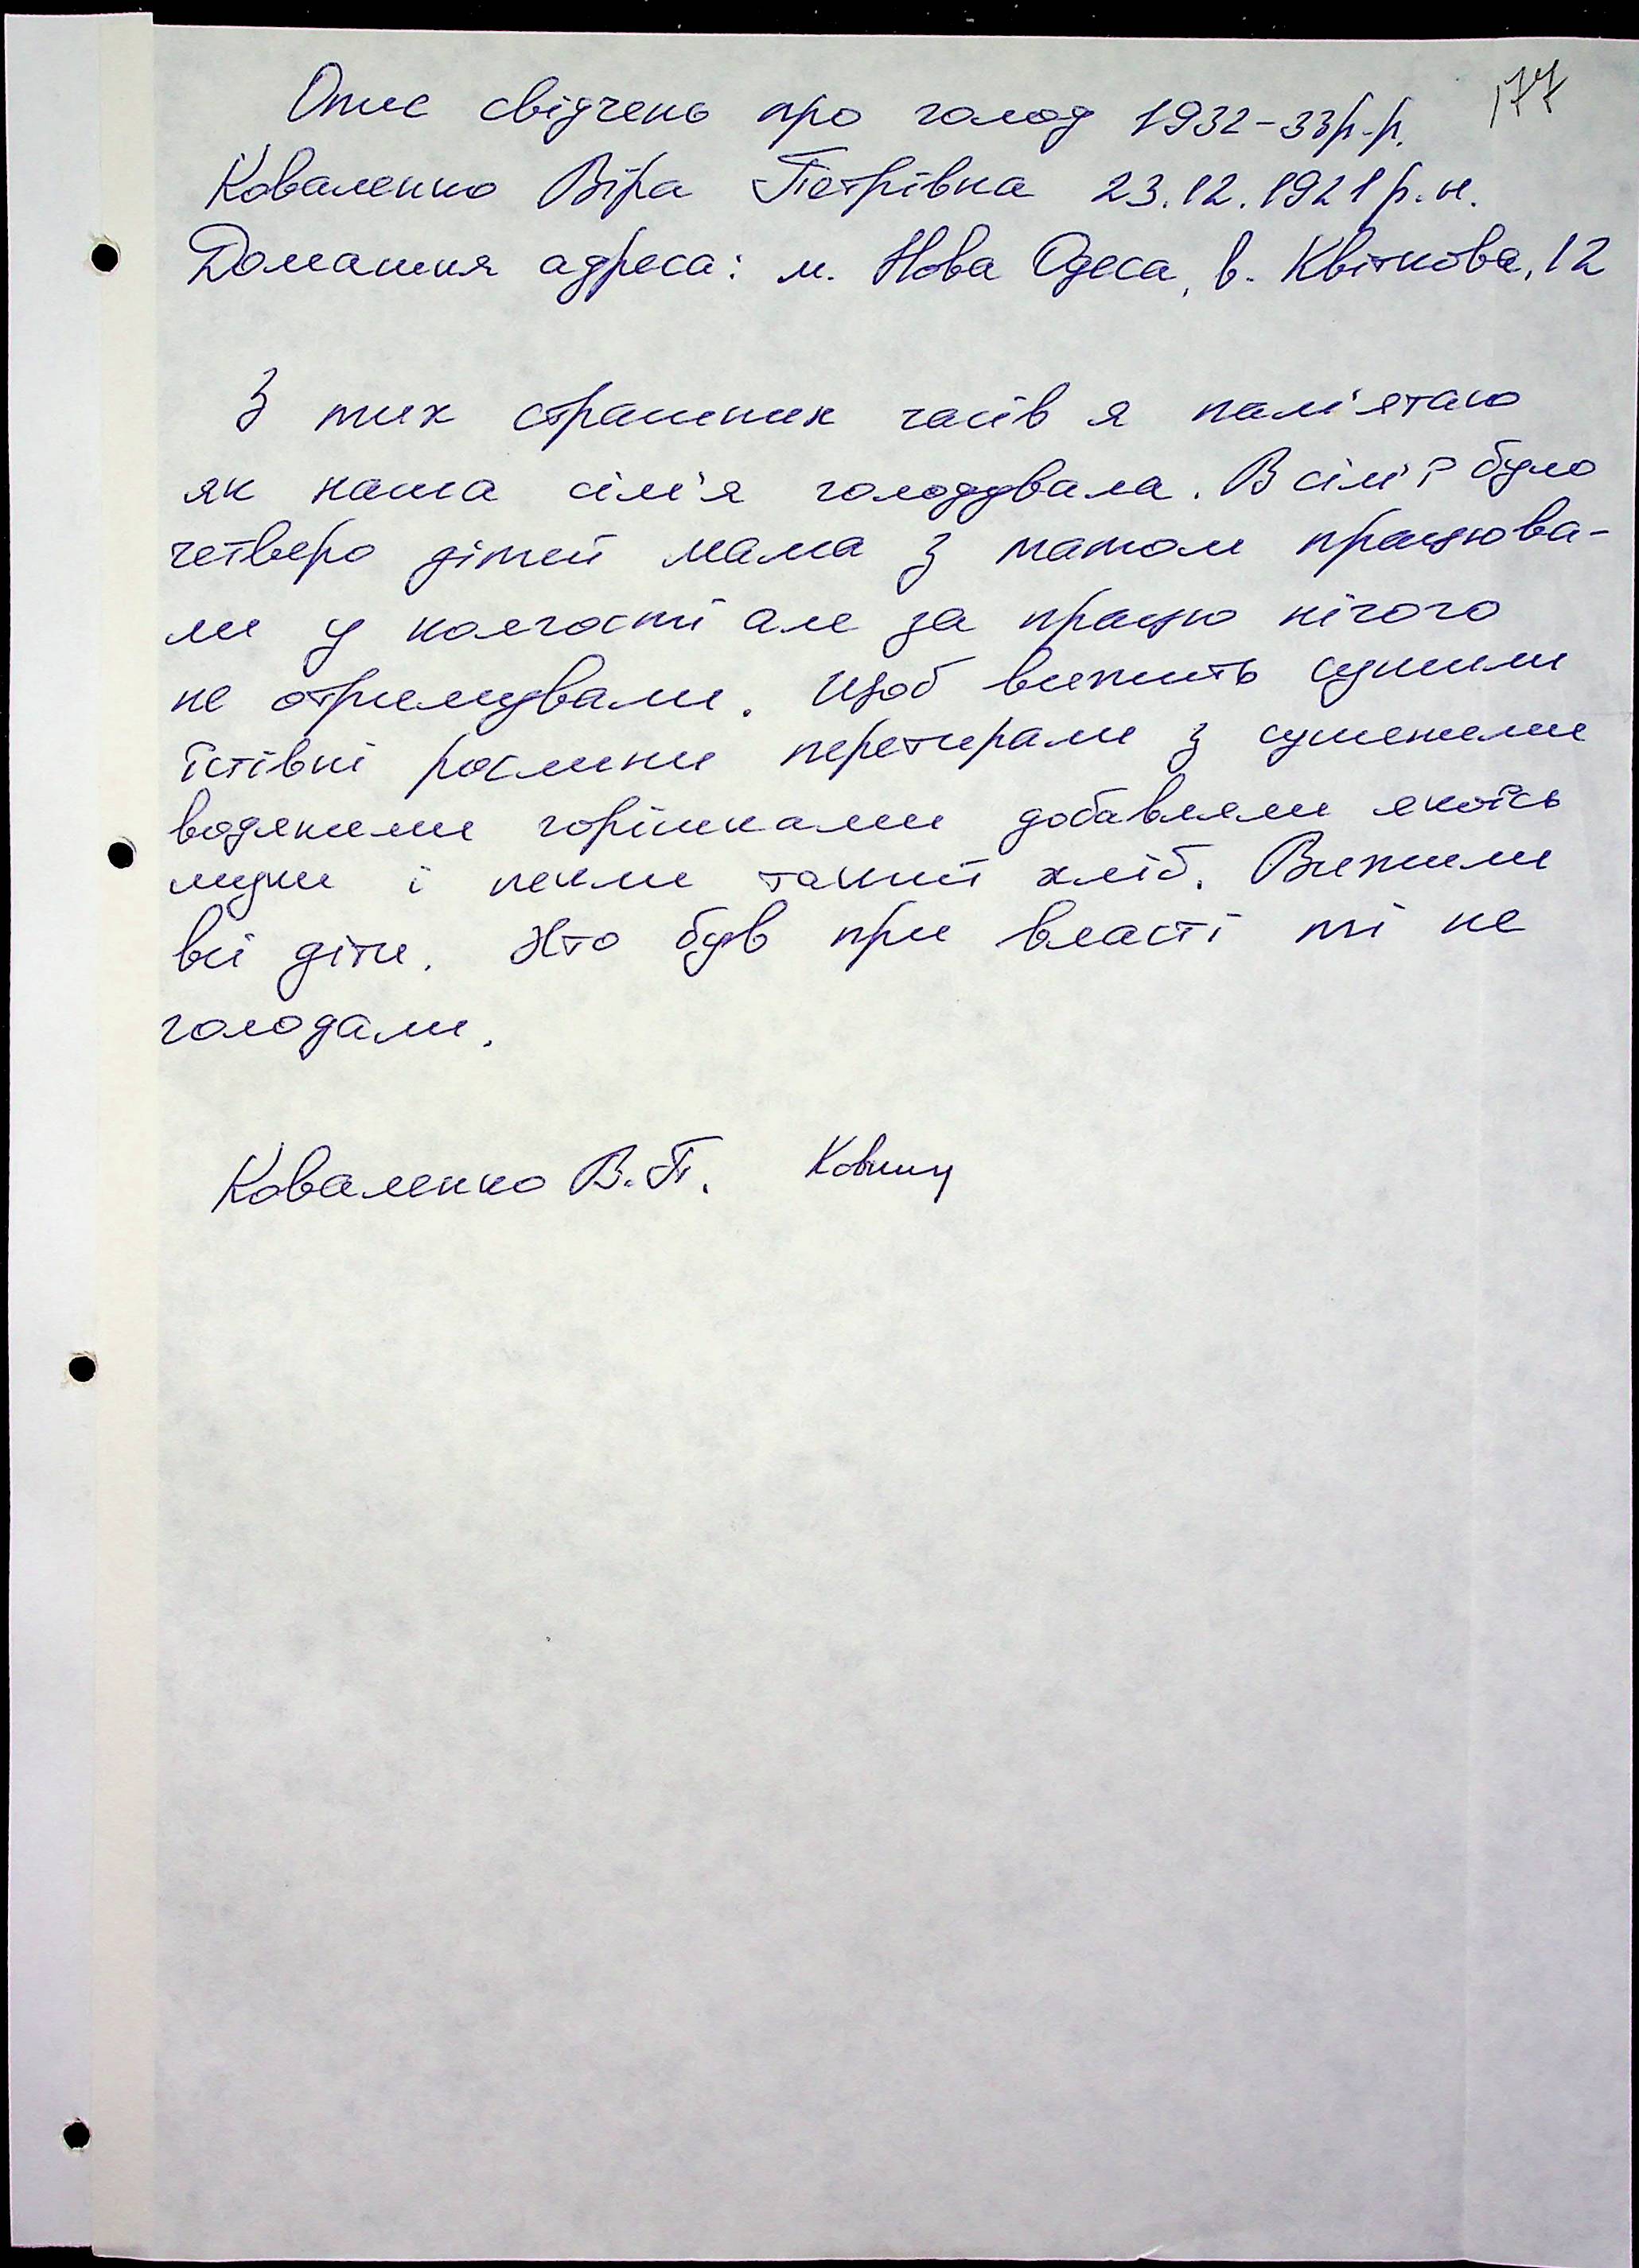 177
Опис свідчень про голод 1932-33р.р.
Коваленко Віра Петрівна 23.12.1921р.н.
Домашня адреса: м. Нова Одеса, в. Квіткова, 12
З тих страшних часів я пам'ятаю
як наша сім'я голодувала. В сім'ї було
четверо дітей мама з татом працюва-
ли у колгоспі але за працю нічого
не отримували. Щоб вижить сушили
їстівні рослини перетирали з сушеними
водяними горішками добавляли якоїсь
муки і пекли такий хліб. Вижили
всі діти. Хто був при власті ті не
голодали.
Коваленко В.П.